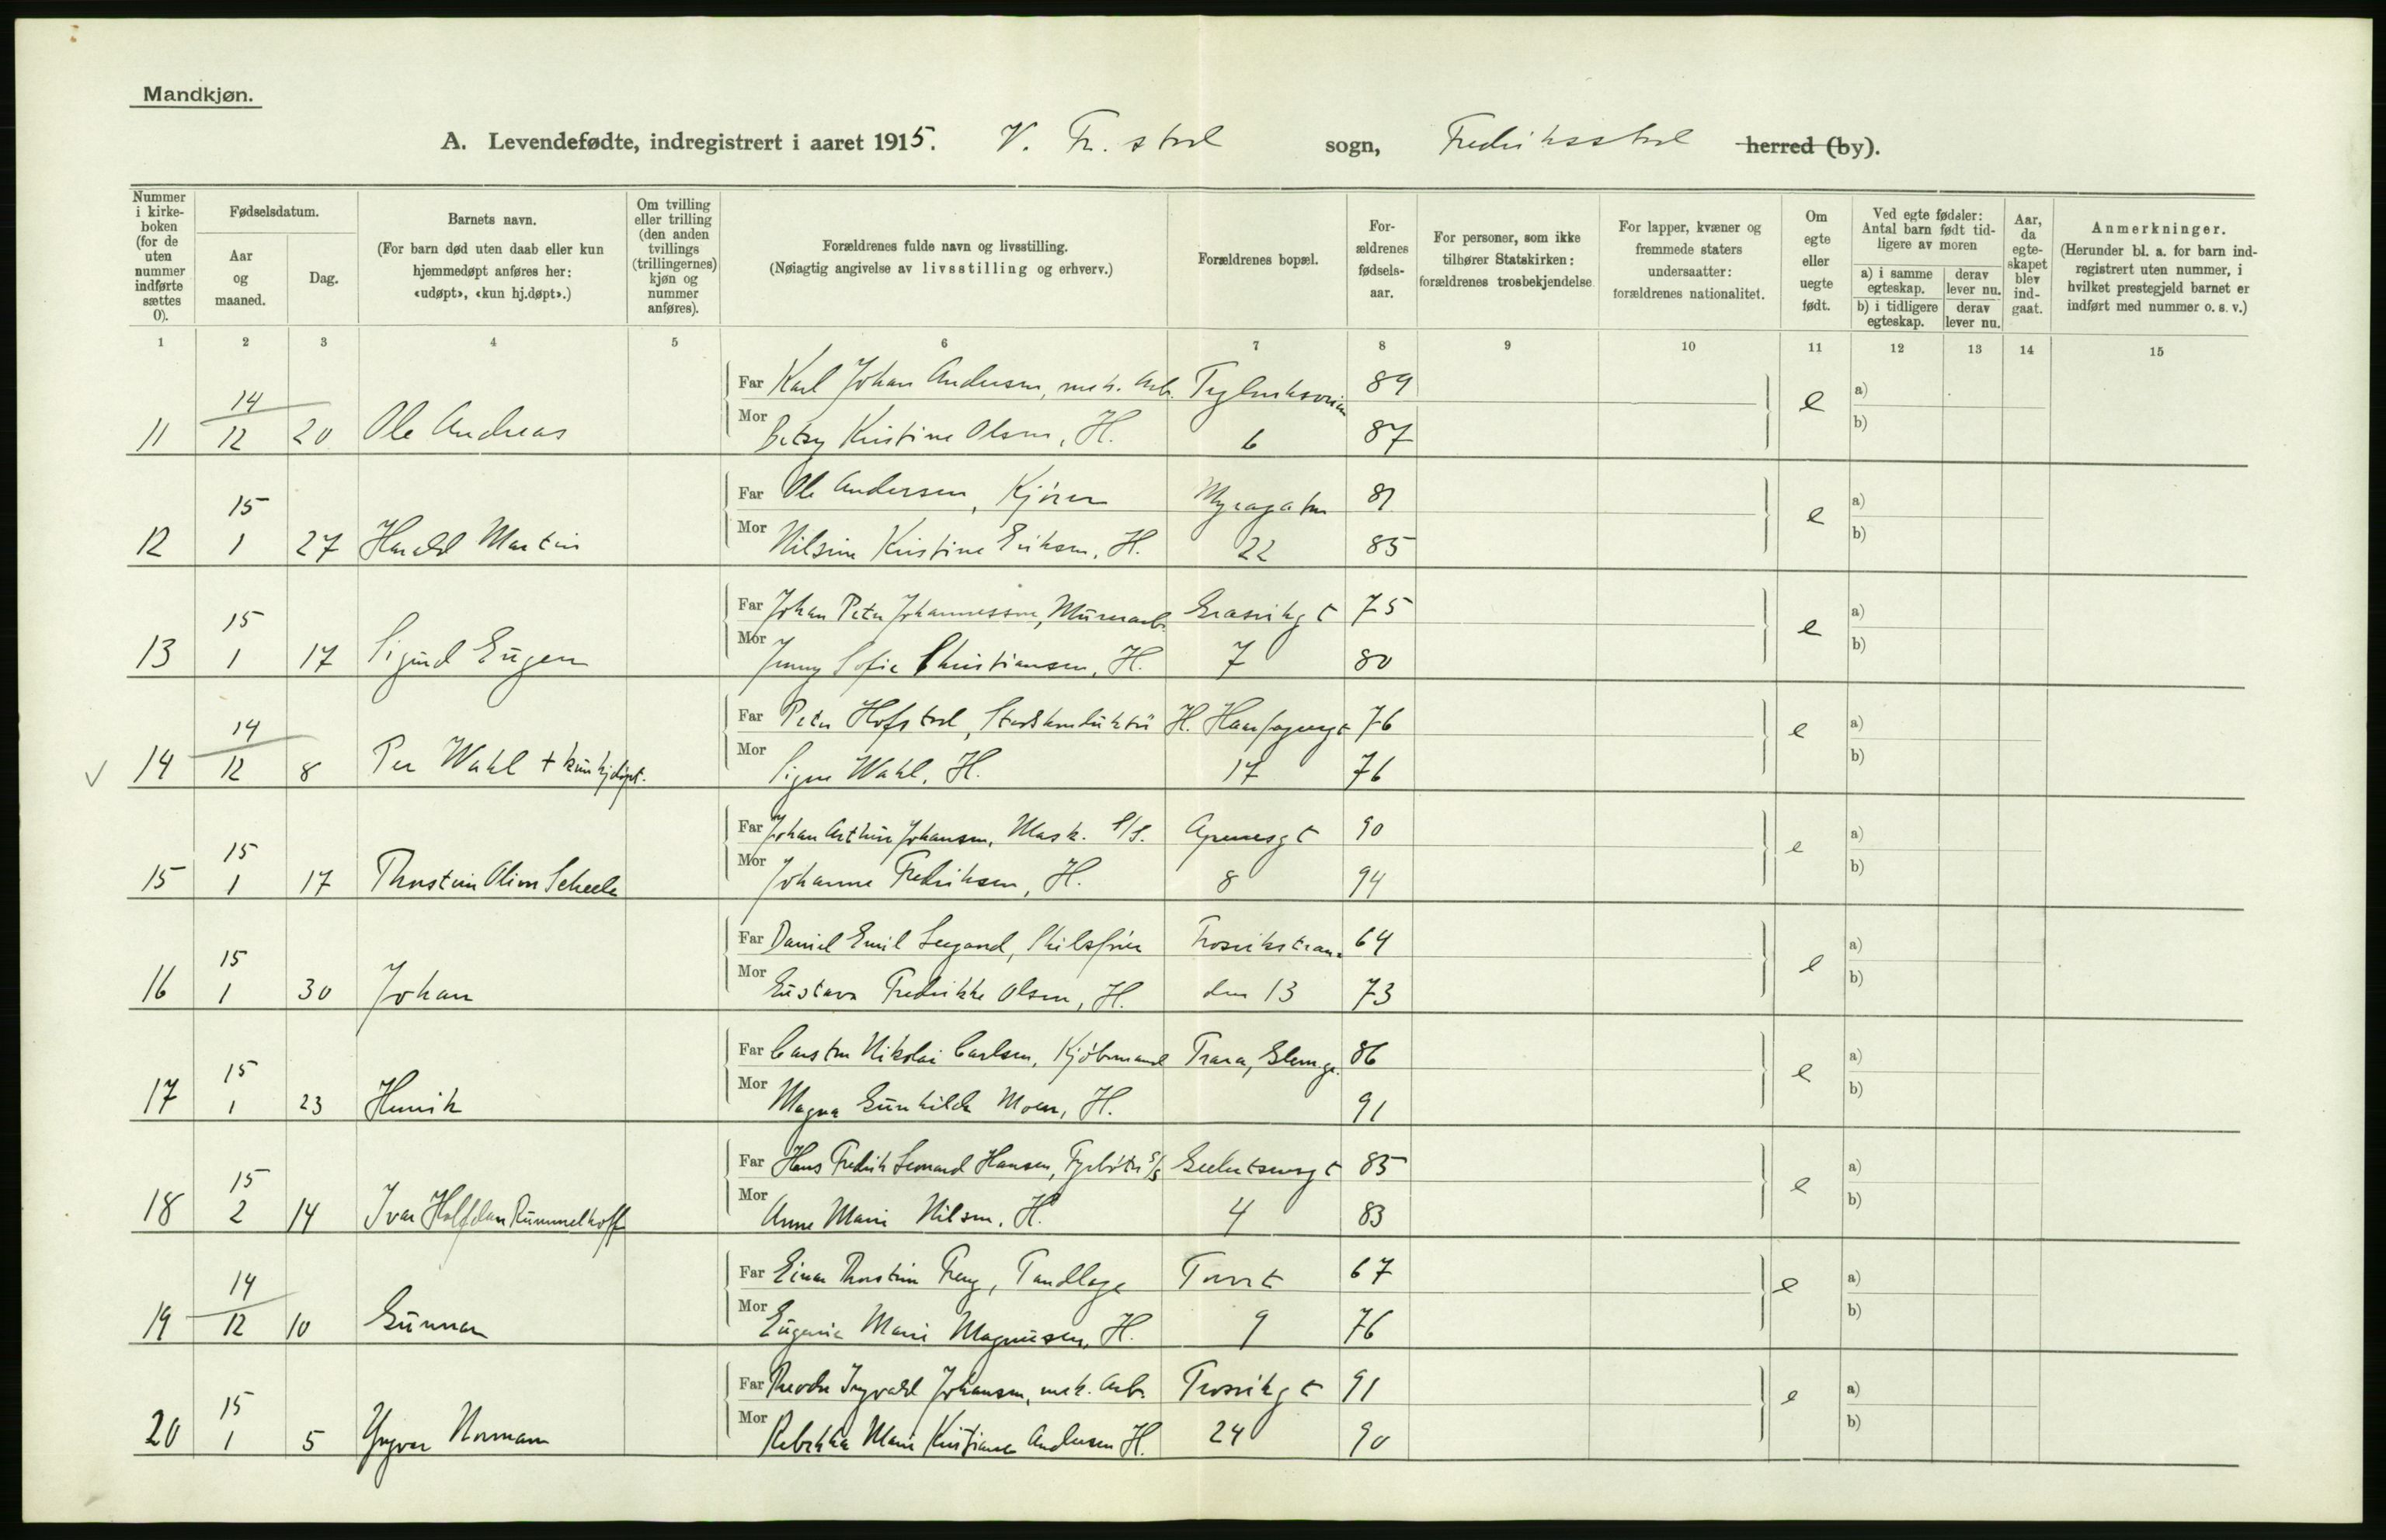 Mandkjøn.
A. Levendefødte, indregistrert i aaret 1915. V. Fr.stad sogn, Fredriksstad herred (by).
Nummer i kirke- boken (for de uten nummer indførte sættes 0).
Fødselsdatum.
Aar og maaned.
Dag.
Barnets navn.
(For barn død uten daab eller kun hjemmedøpt anføres her: «udøpt», «kun hj.døpt».)
Om tvilling eller trilling (den anden tvillings (trillingernes) kjøn og nummer anføres).
Forældrenes fulde navn og livsstilling.
(Nøiagtig angivelse av livsstilling og erhverv.)
Forældrenes bopæl.
For- ældrenes fødsels- aar.
For personer, som ikke tilhører Statskirken: forældrenes trosbekjendelse
For lapper, kvæner og fremmede staters undersaatter: forældrenes nationalitet.
Om egte eller uegte født.
Ved egte fødsler: Antal barn født tid- ligere av moren
a) i samme egteskap.
derav lever nu.
b) i tidligere egteskap.
derav lever nu.
Aar, da egte- skapet blev ind- gaat.
Anmerkninger.
(Herunder bl. a. for barn ind- registrert uten nummer, i hvilket prestegjeld barnet er indført med nummer o. s. v.)
1 2 3 4 5 6 7 8 9 10 11 12 13 14 15
14 Far Karl Johan Andersen, mek. Arb. 89 e a)
11 12 20 Ole Andreas Mor Betzy Kristine Olsen, H. 6 87 b)
15 Far Ole Andersen, Kjører Myragaten 81 e a)
12 1 27 Harald Martin Mor Nilsine Kristine Eriksen, H. 22 85 b)
15 Far Johan Peter Johannessen, Murerarb. Græsvikgt 75 e a)
13 1 17 Sigurd Eugen Mor Jenny Sofie Christiansen, H. 7 80 b)
14 Far Peter Hofstad, H. Haarfagersgt 76 e a)
14 12 8 Per Wahl + kun hjdøpt. Mor Signe Wahl, H. 17 76 b)
15 Far Johan Arthur Johansen, Mask. S/S. 90 e a)
15 1 17 Thorstein Oliver Scheele Mor Johanne Fredriksen, H. 8 94 b)
15 Far Daniel Emil Trosvikstran- 64 e a)
16 1 30 Johan Mor Gustava Fredrikke Olsen, H. den 13 73 b)
15 Far Carsten Nikolai Carlsen, Kjøbmand Trara, Glemge. 86 e a)
17 1 23 Henrik Mor Magna Gunhilda Moen, H. 91 b)
15 Far Hans Fredrik Leonard Hansen, Fyrbøter S/S 85 e a)
18 2 14 Ivar Halfdan Rummelhoff Mor Anne Marie Nilsen, H. 4 83 b)
14 Far Einar Thorstein Treng, Tandlæge Torvet 67 e a)
19 12 10 Gunnar Mor Eugenie Marie Magnusen, H. 9 76 b)
15 Far Theodor Ingvald Johansen, mek. Arb. Trosvikgt 91 e a)
20 1 5 Yngvar Norman Mor Rebekka Marie Kristiane Andersen H. 24 90 b)